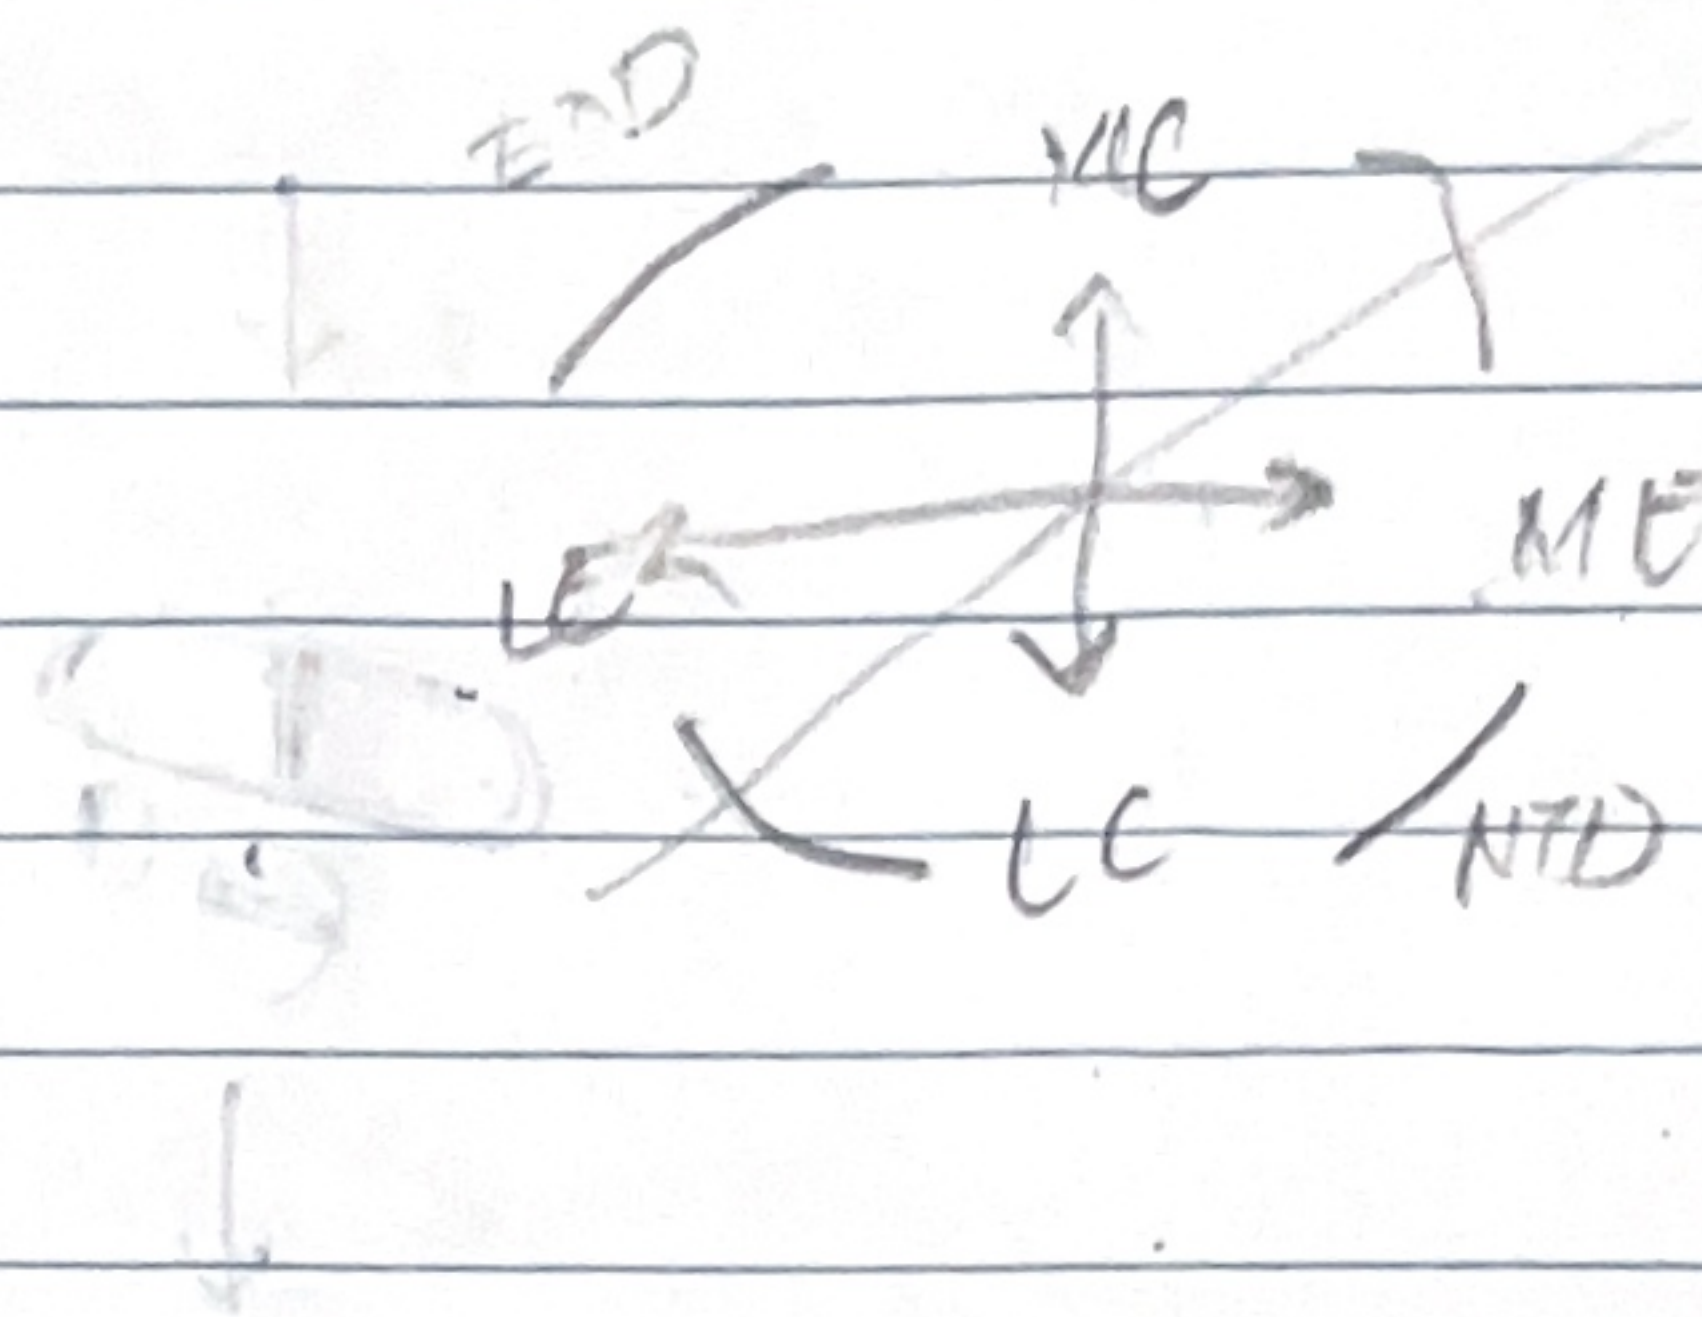 END
MC
LE
ME
LC
NTD